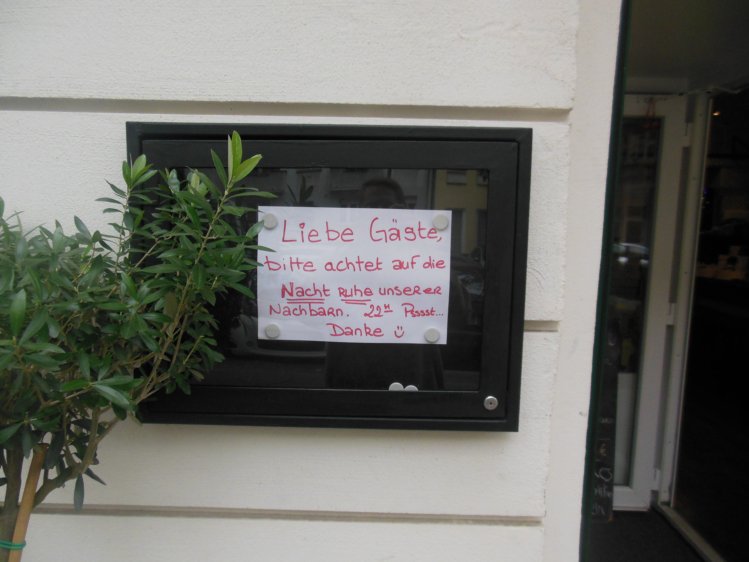 Liebe Gäste,
bitte achtet auf die
Nacht Ruhe unserer
Nachbarn. 22H Pssst...
Danke ☺